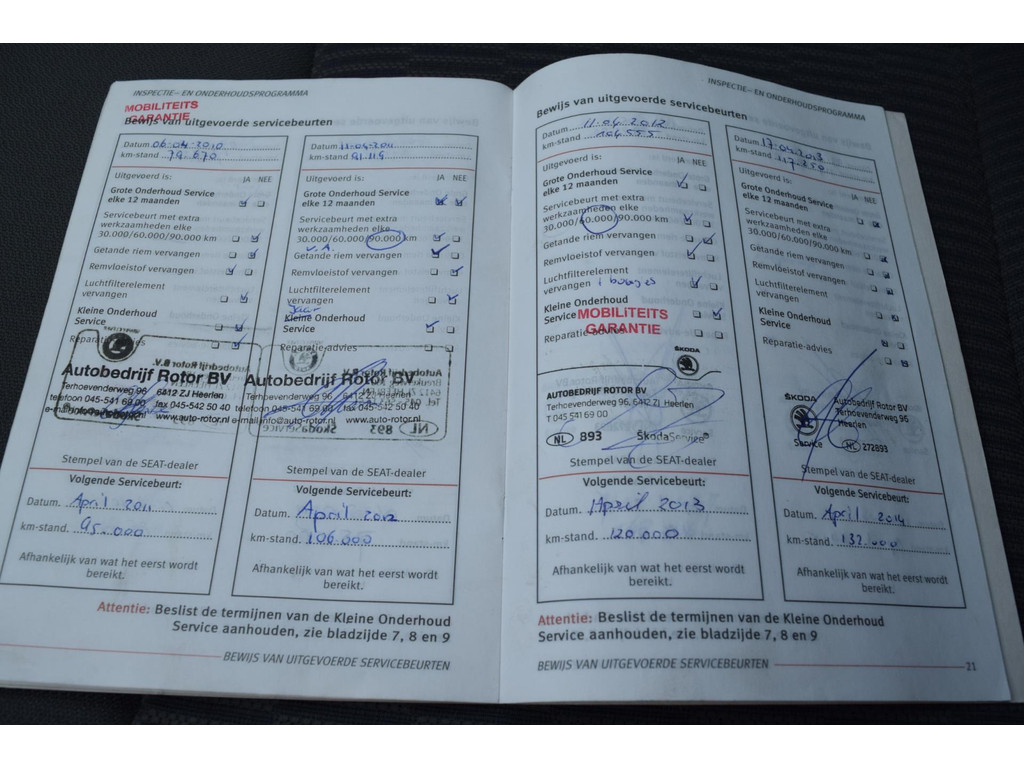 INSPECTIE- EN ONDERHOUDSPROGRAMMA
MOBILITEITS
GARANTIE
Bewijs van uitgevoerde servicebeurten
Datum 06-04-2010
km-stand 79.670
Uitgevoerd is: JA NEE
Grote Onderhoud Service
elke 12 maanden
Servicebeurt met extra
werkzaamheden elke
30.000/60.000/90.000 km
Getande riem vervangen
Remvloeistof vervangen
Luchtfilterelement
vervangen
Kleine Onderhoud
Service
Reparatie-advies
Autobedrijf Rotor BV
Terhoevenderweg 96 6412 ZJ Heerlen
telefoon 045-541 69 00 fax 045-542 50 40
www.auto-rotor.nl
Stempel van de SEAT-dealer
Volgende Servicebeurt:
Datum. April 2011
km-stand. 95.000
Afhankelijk van wat het eerst wordt
bereikt.
Datum 11-04-2011
km-stand 91.119
Uitgevoerd is: JA NEE
Grote Onderhoud Service
elke 12 maanden
Servicebeurt met extra
werkzaamheden elke
30.000/60.000/90.000 km
Getande riem vervangen
Remvloeistof vervangen
Luchtfilterelement
vervangen
Kleine Onderhoud
Service
Reparatie-advies
Autobedrijf Rotor BV
Terhoevenderweg 96 6412 ZJ Heerlen
telefoon 045-541 69 00 fax 045-542 50 40
e-mail info@auto-rotor.nl www.auto-rotor.nl
Stempel van de SEAT-dealer
Volgende Servicebeurt:
Datum. April 2012
km-stand. 106.000
Afhankelijk van wat het eerst wordt
bereikt.
Attentie: Beslist de termijnen van de Kleine Onderhoud
Service aanhouden, zie bladzijde 7, 8 en 9
BEWIJS VAN UITGEVOERDE SERVICEBEURTEN
INSPECTIE- EN ONDERHOUDSPROGRAMMA
Bewijs van uitgevoerde servicebeurten
Datum 11-04-2012
km-stand 104.555
Uitgevoerd is: JA NEE
Grote Onderhoud Service
elke 12 maanden
Servicebeurt met extra
werkzaamheden elke
30.000/60.000/90.000 km
Getande riem vervangen
Remvloeistof vervangen
Luchtfilterelement
vervangen
Kleine Onderhoud
Service
MOBILITEITS
GARANTIE
Reparatie-advies
ŠKODA
AUTOBEDRIJF ROTOR BV
Terhoevenderweg 96, 6412 ZJ Heerlen
T 045 541 69 00
NL 893 ŠkodaService
Stempel van de SEAT-dealer
Volgende Servicebeurt:
Datum. April 2013
km-stand. 120.000
Afhankelijk van wat het eerst wordt
bereikt.
Datum 17-04-2013
km-stand 117.250
Uitgevoerd is: JA NEE
Grote Onderhoud Service
elke 12 maanden
Servicebeurt met extra
werkzaamheden elke
30.000/60.000/90.000 km
Getande riem vervangen
Remvloeistof vervangen
Luchtfilterelement
vervangen
Kleine Onderhoud
Service
Reparatie-advies
ŠKODA
Autobedrijf Rotor BV
Terhoevenderweg 96
Heerlen
Service NL 272893
Stempel van de SEAT-dealer
Volgende Servicebeurt:
Datum. April 2014
km-stand. 132.000
Afhankelijk van wat het eerst wordt
bereikt.
Attentie: Beslist de termijnen van de Kleine Onderhoud
Service aanhouden, zie bladzijde 7, 8 en 9
BEWIJS VAN UITGEVOERDE SERVICEBEURTEN 21